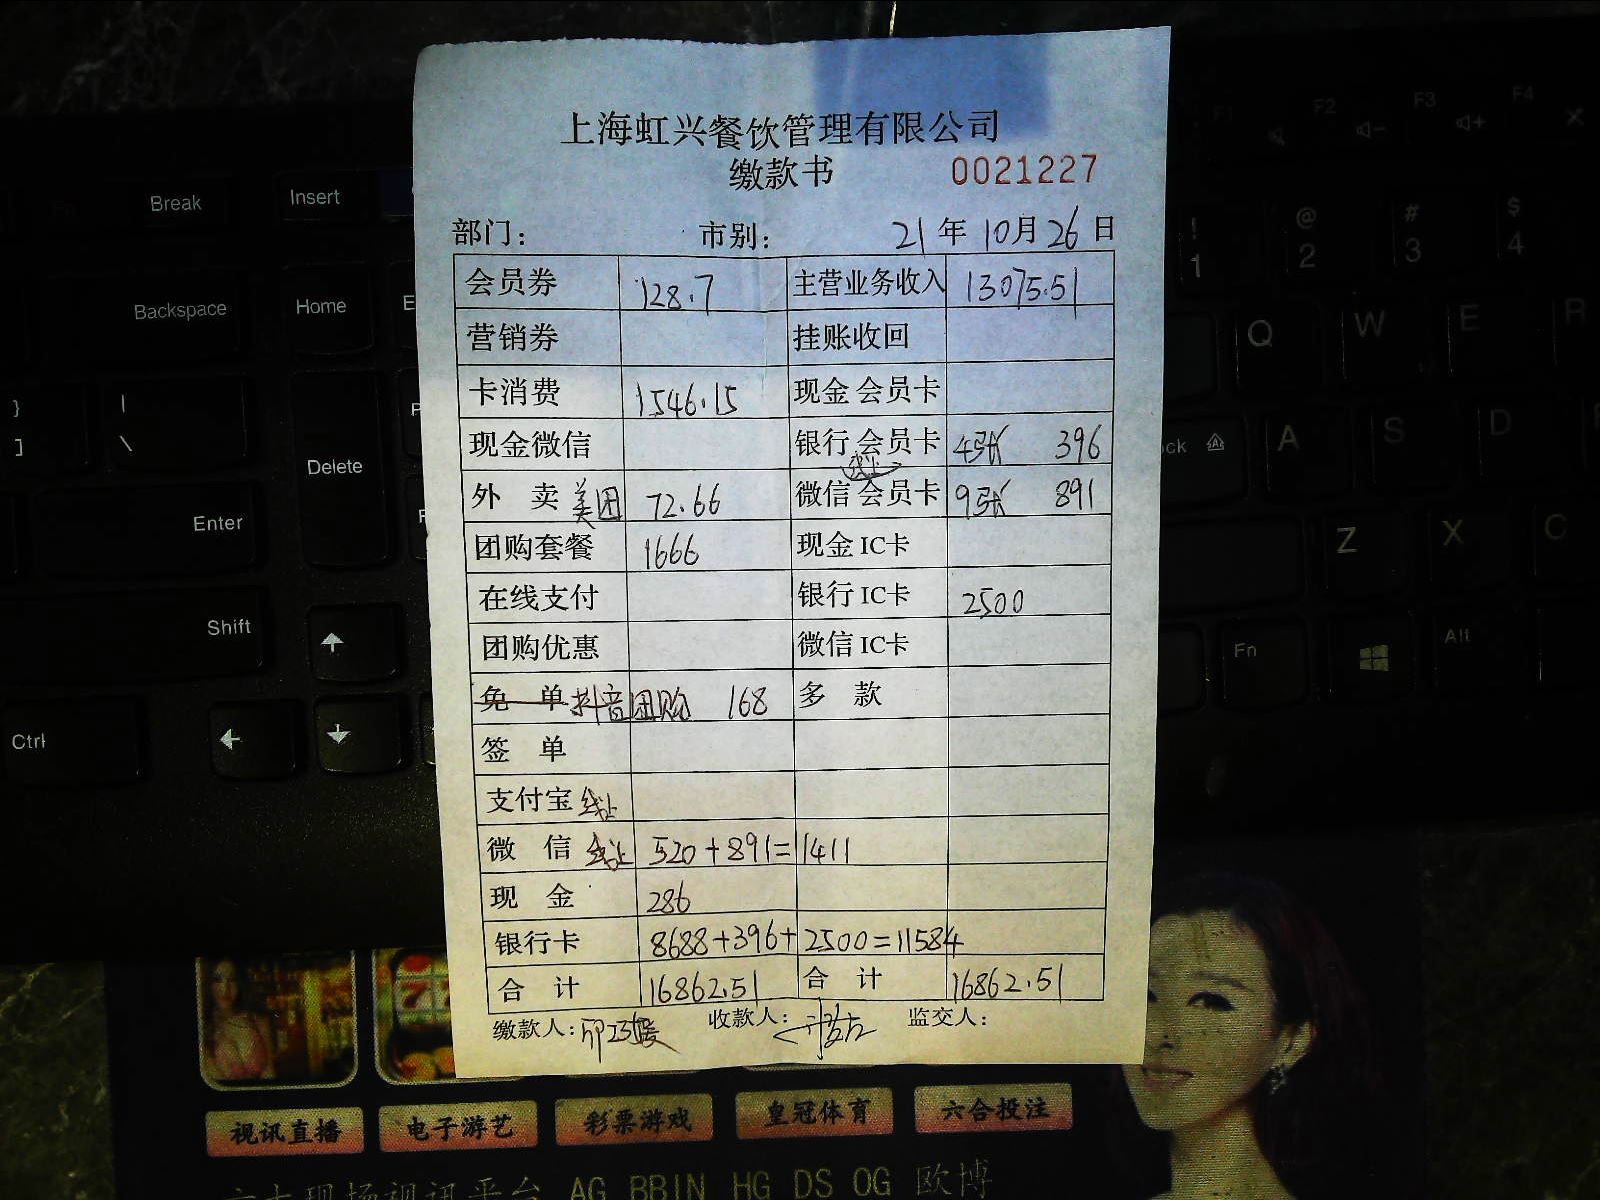 上海虹兴餐饮管理有限公司
缴款书 0021227
部门： 市别： 21年10月26日
会员券 128.7 主营业务收入 13075.51
营销券 挂账收回
卡消费 1546.15 现金 会员卡
现金微信 银行 会员卡 4张 396
线上
外 卖 美团 72.66 微信 会员卡 9张 891
团购套餐 1666 现金 IC卡
在线支付 银行 IC卡 2500
团购优惠 微信 IC卡
免 单 抖音团购 168 多 款
签 单
支付宝 线上
微 信 线上 520+891=1411
现 金 286
银行卡 8688+396+2500=11584
合 计 16862.51 合 计 16862.51
缴款人： 收款人： 监交人：
Break Insert
Backspace Home
Delete
Enter
Shift
Ctrl
F1 F2 F3 F4
! 1 @ 2 # 3 $ 4
Q W E R
A S D
Z X C
Fn Alt
视讯直播 电子游艺 彩票游戏 皇冠体育 六合投注
AG BBIN HG DS OG 欧博